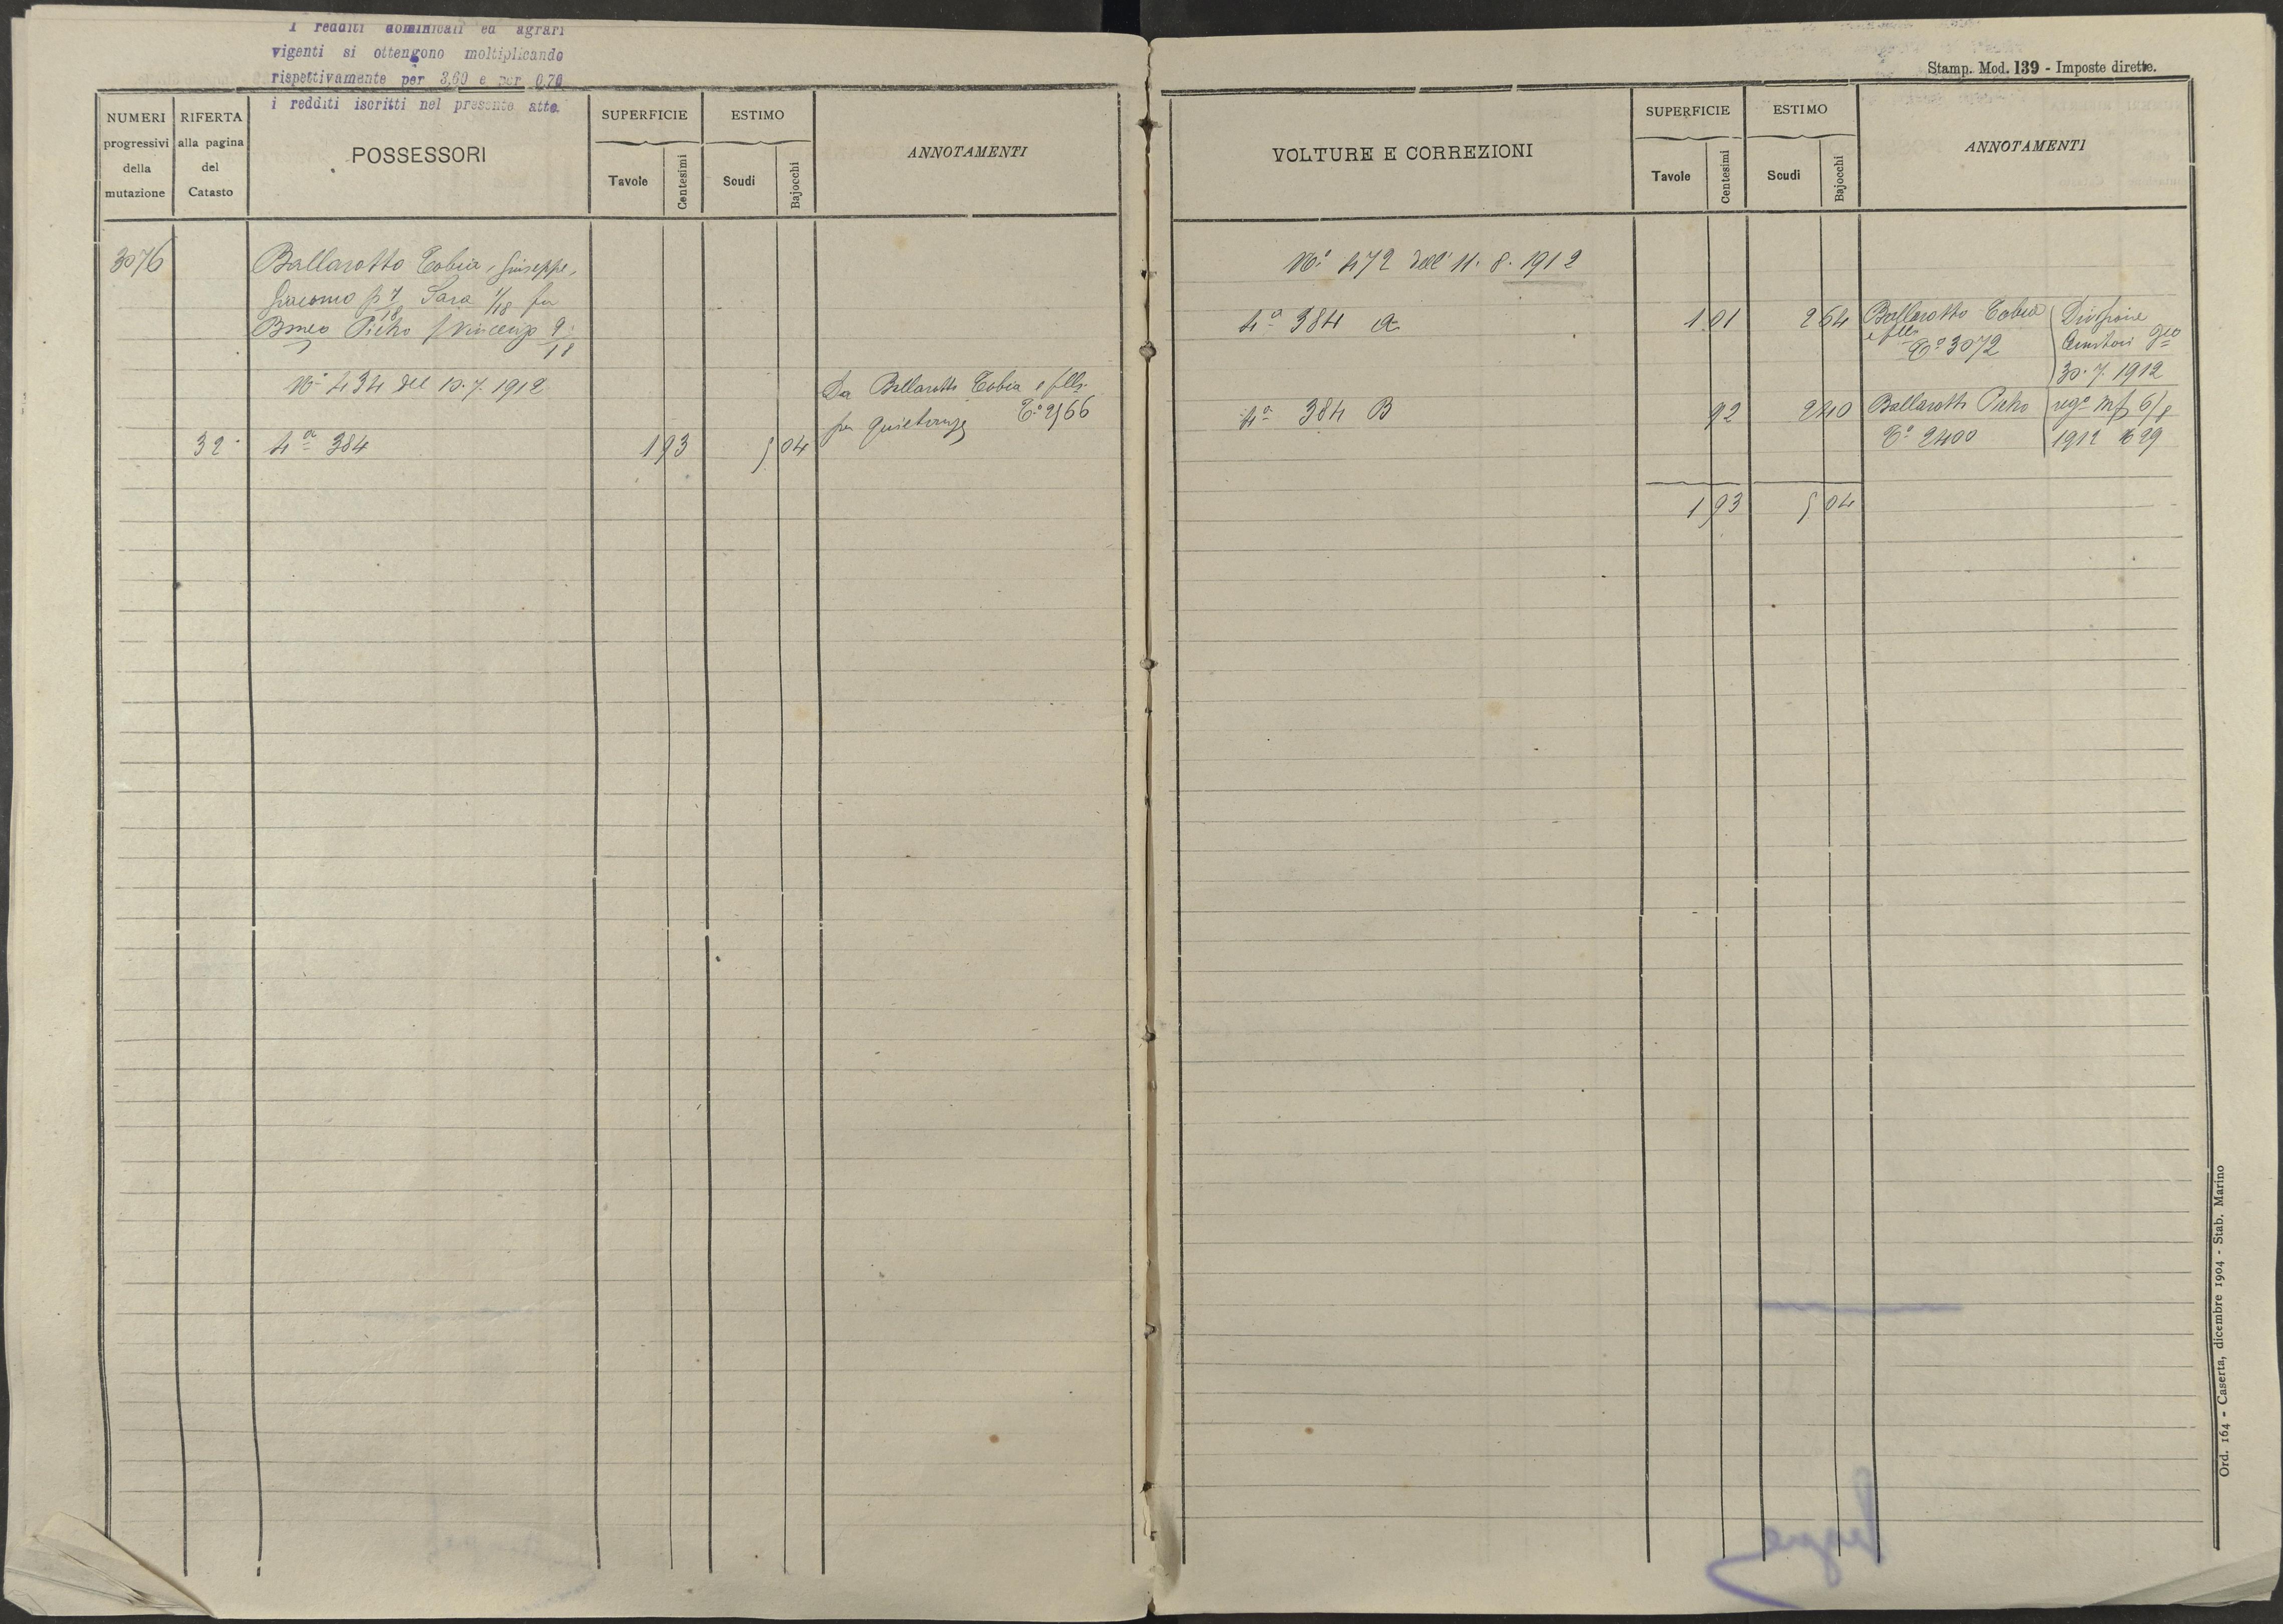 I redditi dominicali ed agrari
vigenti si ottengono moltiplicando
rispettivamente per 3,60 e per 0,70
i redditi iscritti nel presente atto.
NUMERI
progressivi
della
mutazione
RIFERTA
alla pagina
del
Catasto
POSSESSORI
SUPERFICIE
Tavole
Centesimi
ESTIMO
Scudi
Bajocchi
ANNOTAMENTI
3076
Ballarotto Tobia, Giuseppe,
Giacomo p 7/18 Sara 1/18 fu
Bmeo Pietro fu Vincenzo 9/18
No 434 del 10.7.1912
32 4a 384 1 93 5 04
Da Ballarotto Tobia e flli
per quietanza To 2566
Stamp. Mod. 139 - Imposte dirette.
VOLTURE E CORREZIONI
SUPERFICIE
Tavole
Centesimi
ESTIMO
Scudi
Bajocchi
ANNOTAMENTI
No 472 dell' 11.8.1912
4a 384 a 1 01 2 64
Ballarotto Tobia
e flli
To 3072
Divisione
30.7.1912
4a 384 B 92 2 40
Ballarotto Pietro
To 2400
1912 629
1 93 5 04
Ord. 164 - Caserta, dicembre 1904 - Stab. Marino